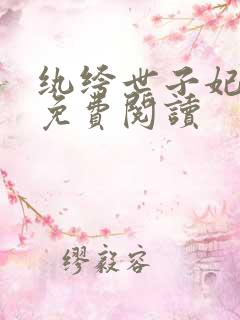 纨绔世子妃
免費閱讀
繆毅容